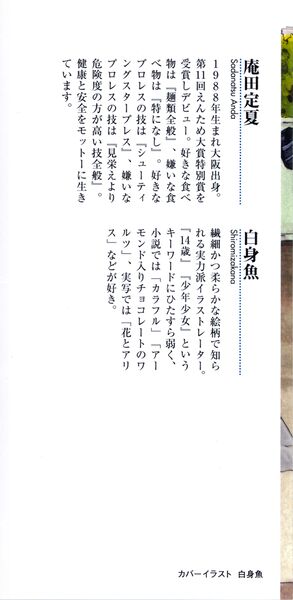 庵田定夏
Sadanatsu Anda
1988年生まれ大阪出身。
第11回えんため大賞特別賞を
受賞しデビュー。好きな食べ
物は『麺類全般』、嫌いな食
べ物は『特になし』。好きな
プロレスの技は『シューティ
ングスタープレス』、嫌いな
プロレスの技は『見栄えより
危険度の方が高い技全般』。
健康と安全をモットーに生き
ています。
白身魚
Shiromizakana
繊細かつ柔らかな絵柄で知ら
れる実力派イラストレーター。
『14歳』『少年少女』という
キーワードにひたすら弱く、
小説では「カラフル」「アー
モンド入りチョコレートのワ
ルツ」、実写では「花とアリ
ス」などが好き。
カバーイラスト 白身魚